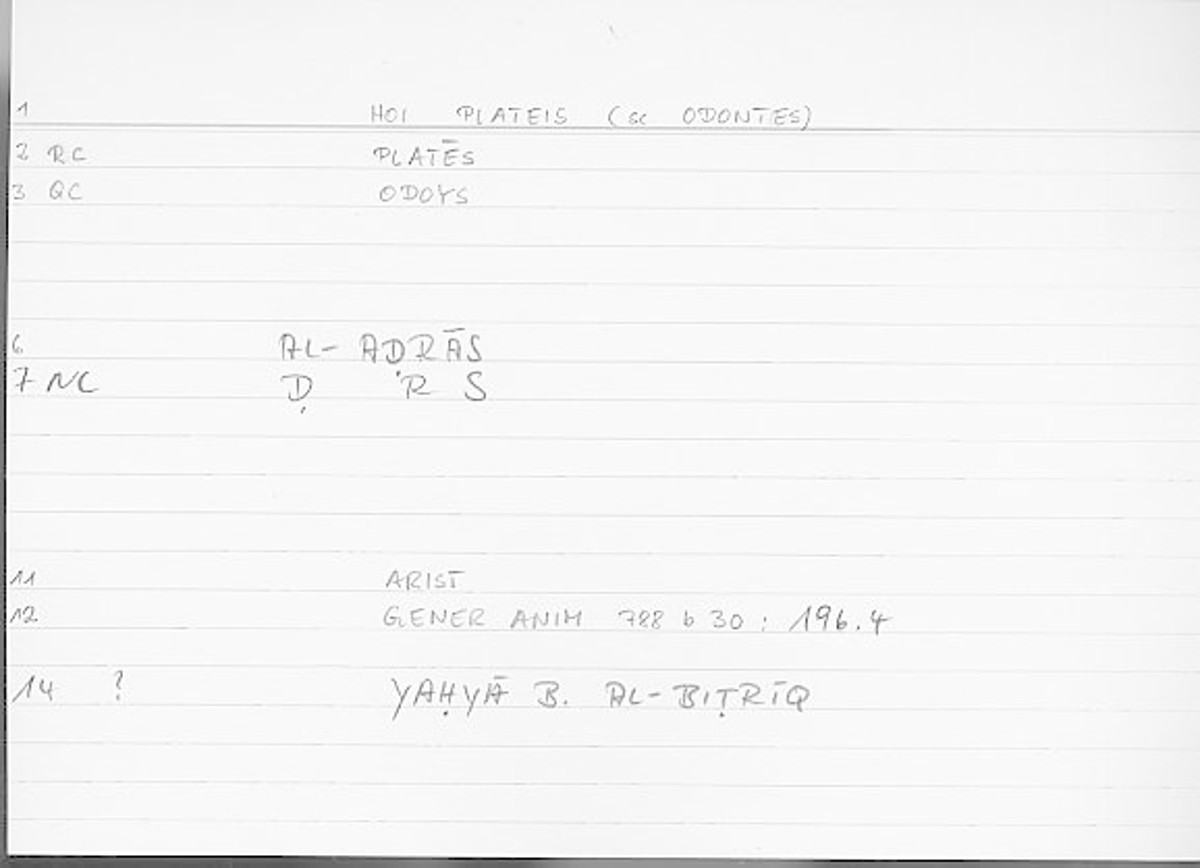 1 HOI PLATEIS (sc ODONTES)
2 RC PLATĒS
3 QC ODOYS
6 AL- AḌRĀS
7 NC Ḍ R S
11 ARIST
12 GENER ANIM 788 b 30 : 196.4
14 ? YAḤYĀ B. AL-BIṬRĪQ